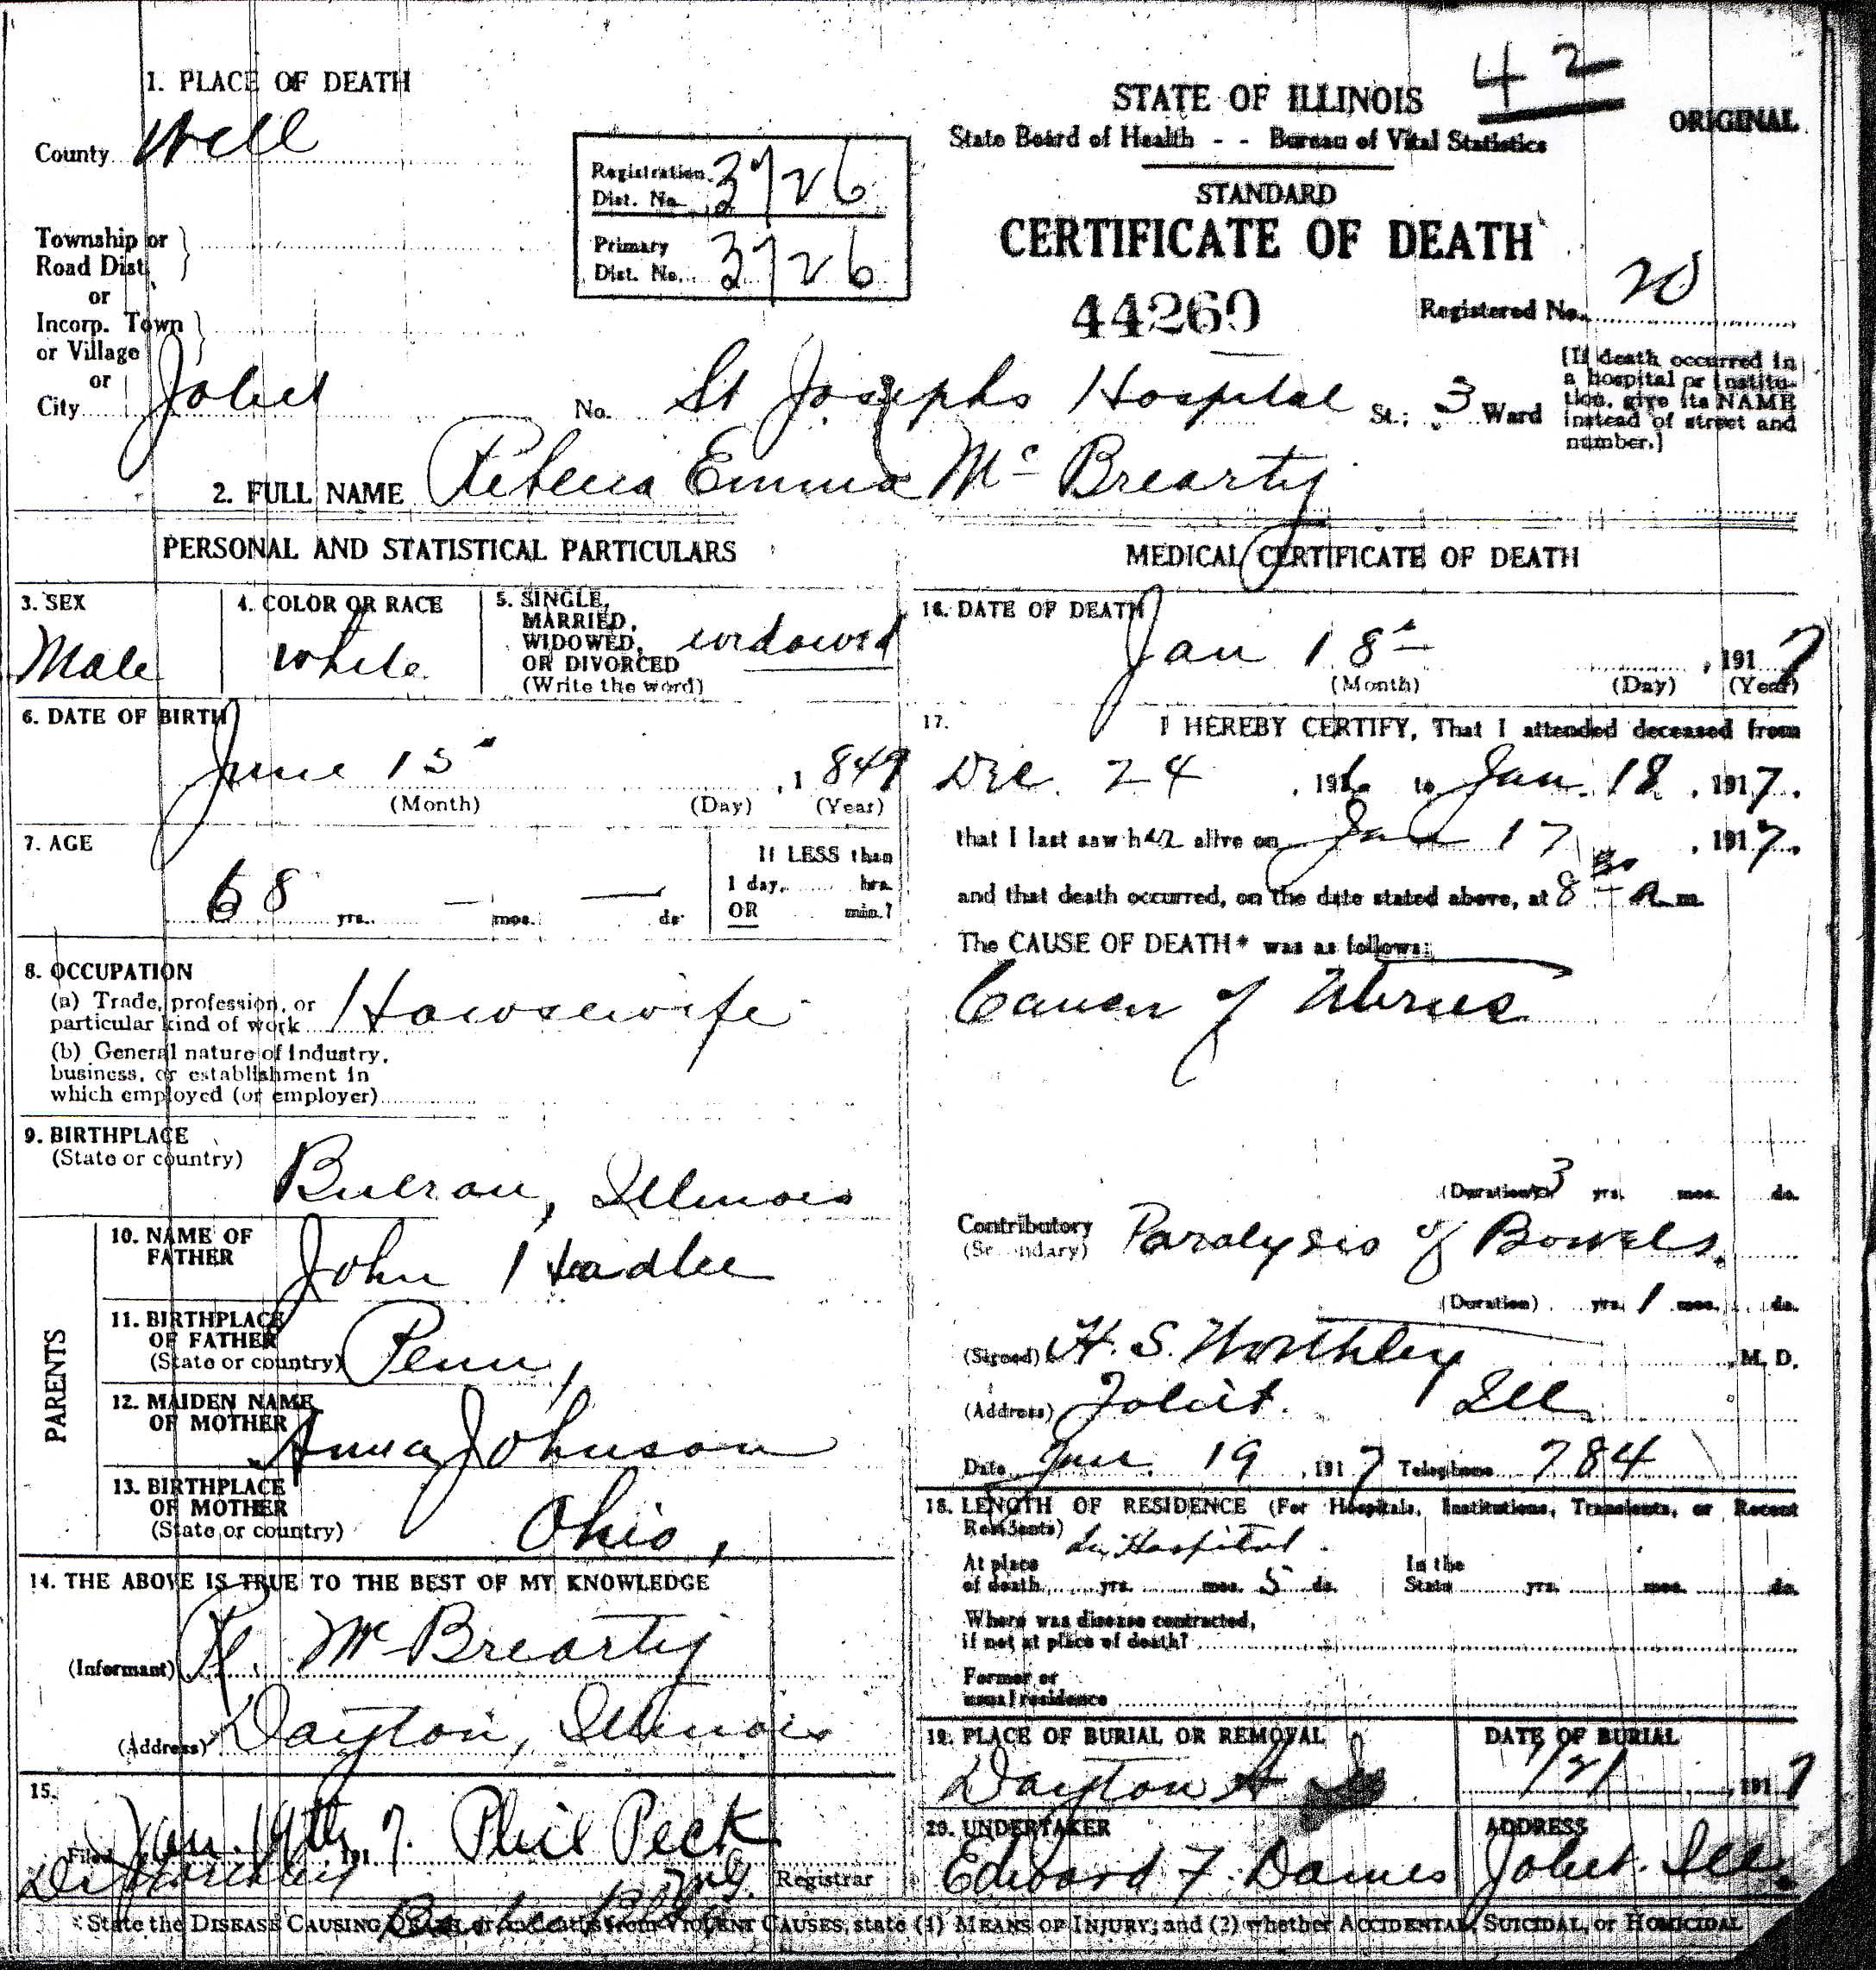 1. PLACE OF DEATH
County Will
Township or
Road Dist.
or
Incorp. Town
or Village
or
City Joliet
Registration
Dist. No. 3726
Primary
Dist. No. 3726
42
STATE OF ILLINOIS
ORIGINAL
State Board of Health - - Bureau of Vital Statistics
STANDARD
CERTIFICATE OF DEATH
44260
Registered No. 20
No. St Josephs Hospital St.; 3 Ward
[If death occurred in
a hospital or institu-
tion, give its NAME
instead of street and
number.]
2. FULL NAME Rebecca Emma Mc Brearty
PERSONAL AND STATISTICAL PARTICULARS
3. SEX
Male
4. COLOR OR RACE
White
5. SINGLE,
MARRIED,
WIDOWED,
OR DIVORCED
(Write the word)
widowed
6. DATE OF BIRTH
June 15 , 1849
(Month) (Day) (Year)
7. AGE
68 yrs. — mos. — ds.
If LESS than
1 day, hrs.
OR min.?
8. OCCUPATION
(a) Trade, profession, or
particular kind of work Howsewife
(b) General nature of Industry,
business, or establishment in
which employed (or employer)
9. BIRTHPLACE
(State or country)
Illinois
PARENTS
10. NAME OF
FATHER
John Headlee
11. BIRTHPLACE
OF FATHER
(State or country)
Penn,
12. MAIDEN NAME
OF MOTHER
Anna Johnson
13. BIRTHPLACE
OF MOTHER
(State or country)
Ohio,
14. THE ABOVE IS TRUE TO THE BEST OF MY KNOWLEDGE
(Informant) R. Mc Brearty
(Address) Dayton, Illinois
15.
Filed Jan. 19th 1917. Phil Peck
Registrar
MEDICAL CERTIFICATE OF DEATH
16. DATE OF DEATH
Jan 18 , 1917
(Month) (Day) (Year)
17. I HEREBY CERTIFY, That I attended deceased from
Dec. 24 , 1916 to Jan. 18 , 1917.
that I last saw her alive on Jan 17 , 1917.
and that death occurred, on the date stated above, at 8 30 A m.
The CAUSE OF DEATH* was as follows:
Cancer of Uterus
(Duration) 3 yrs. mos. ds.
Contributory
(Secondary)
Paralysis of Bowels.
(Duration) yrs. 1 mos. ds.
(Signed) H. S. Worthley , M. D.
(Address) Joliet. Ill
Date Jan. 19 , 1917 Telephone 784
18. LENGTH OF RESIDENCE (For Hospitals, Institutions, Transients, or Recent
Residents) In Hospital.
At place
of death yrs. mos. 5 ds.
In the
State yrs. mos. ds.
Where was disease contracted,
if not at place of death?
Former or
usual residence
19. PLACE OF BURIAL OR REMOVAL
Dayton
DATE OF BURIAL
1/21 , 1917
20. UNDERTAKER
Edward F. Dames
ADDRESS
Joliet. Ill.
*State the DISEASE CAUSING DEATH, or in deaths from VIOLENT CAUSES, state (1) MEANS OF INJURY; and (2) whether ACCIDENTAL, SUICIDAL, or HOMICIDAL